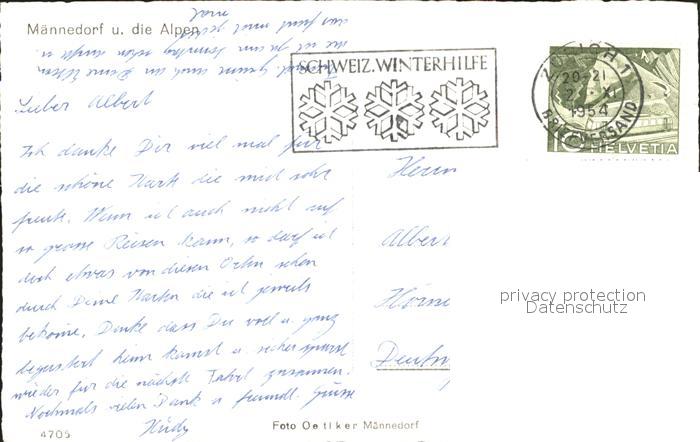 Männedorf u. die Alpen
SCHWEIZ. WINTERHILFE
ZÜRICH 1
20-21
XI
1954
BRIEFVERSAND
10 HELVETIA
Lieber Albert
Ich danke Dir viel mal für
die schöne Karte die mich sehr
freute. Wenn ich auch nicht auf
so grosse Reisen kann, so darf ich
doch etwas von diesen Orten sehen
durch Deine Karten die ich jeweils
bekome. Danke dass Du voll u. ganz
begeistert heim kamst u. sicher sparst
wieder für die nächste Fahrt zusammen.
Nochmals vielen Dank u. freundl. Grüsse
Herrn
Albert
Deuts
privacy protection
Datenschutz
4705
Foto Oetiker Männedorf